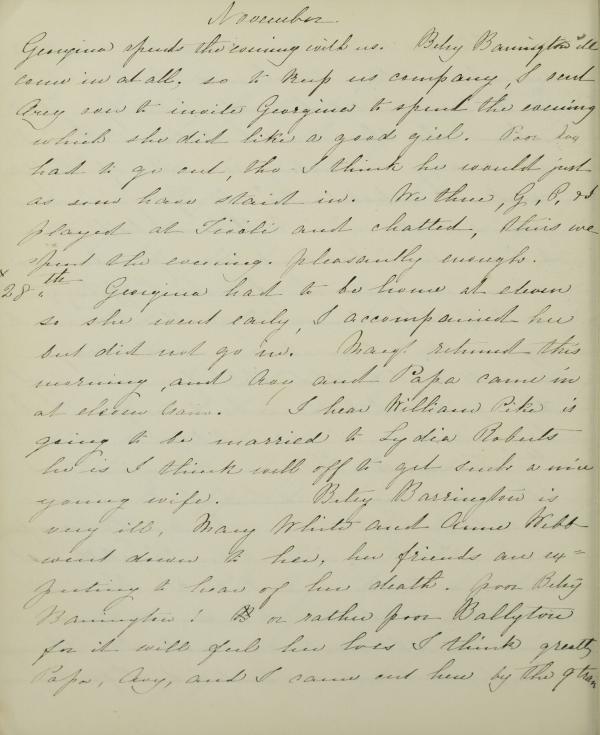 November.
Georgina spends the evening with us. Betsy Barrington ill
come in at all, so to keep us company, I sent
Avy over to invite Georgina to spend the evening
which she did like a good girl. Poor Avy
had to go out, tho I think he would just
as soon have staid in. We three, G, P, & I
played at Tivoli and chatted, thus we
spent the evening. pleasantly enough.
x
28th " Georgina had to be home at eleven
so she went early, I accompanied her
but did not go in. Margt. returned this
morning, and Avy and Papa came in
at eleven I hear William Pike is
going to be married to Lydia Roberts
he is I think well off to get such a nice
young wife. Betsy Barrington is
very ill, Mary White and Anne Webb
went down to her, her friends are ex=
pecting to hear of her death. poor Betsy
Barrington! or rather poor Ballyton
for it will feel her loss I think greatly
Papa, Avy, and I came out here by the 9 train